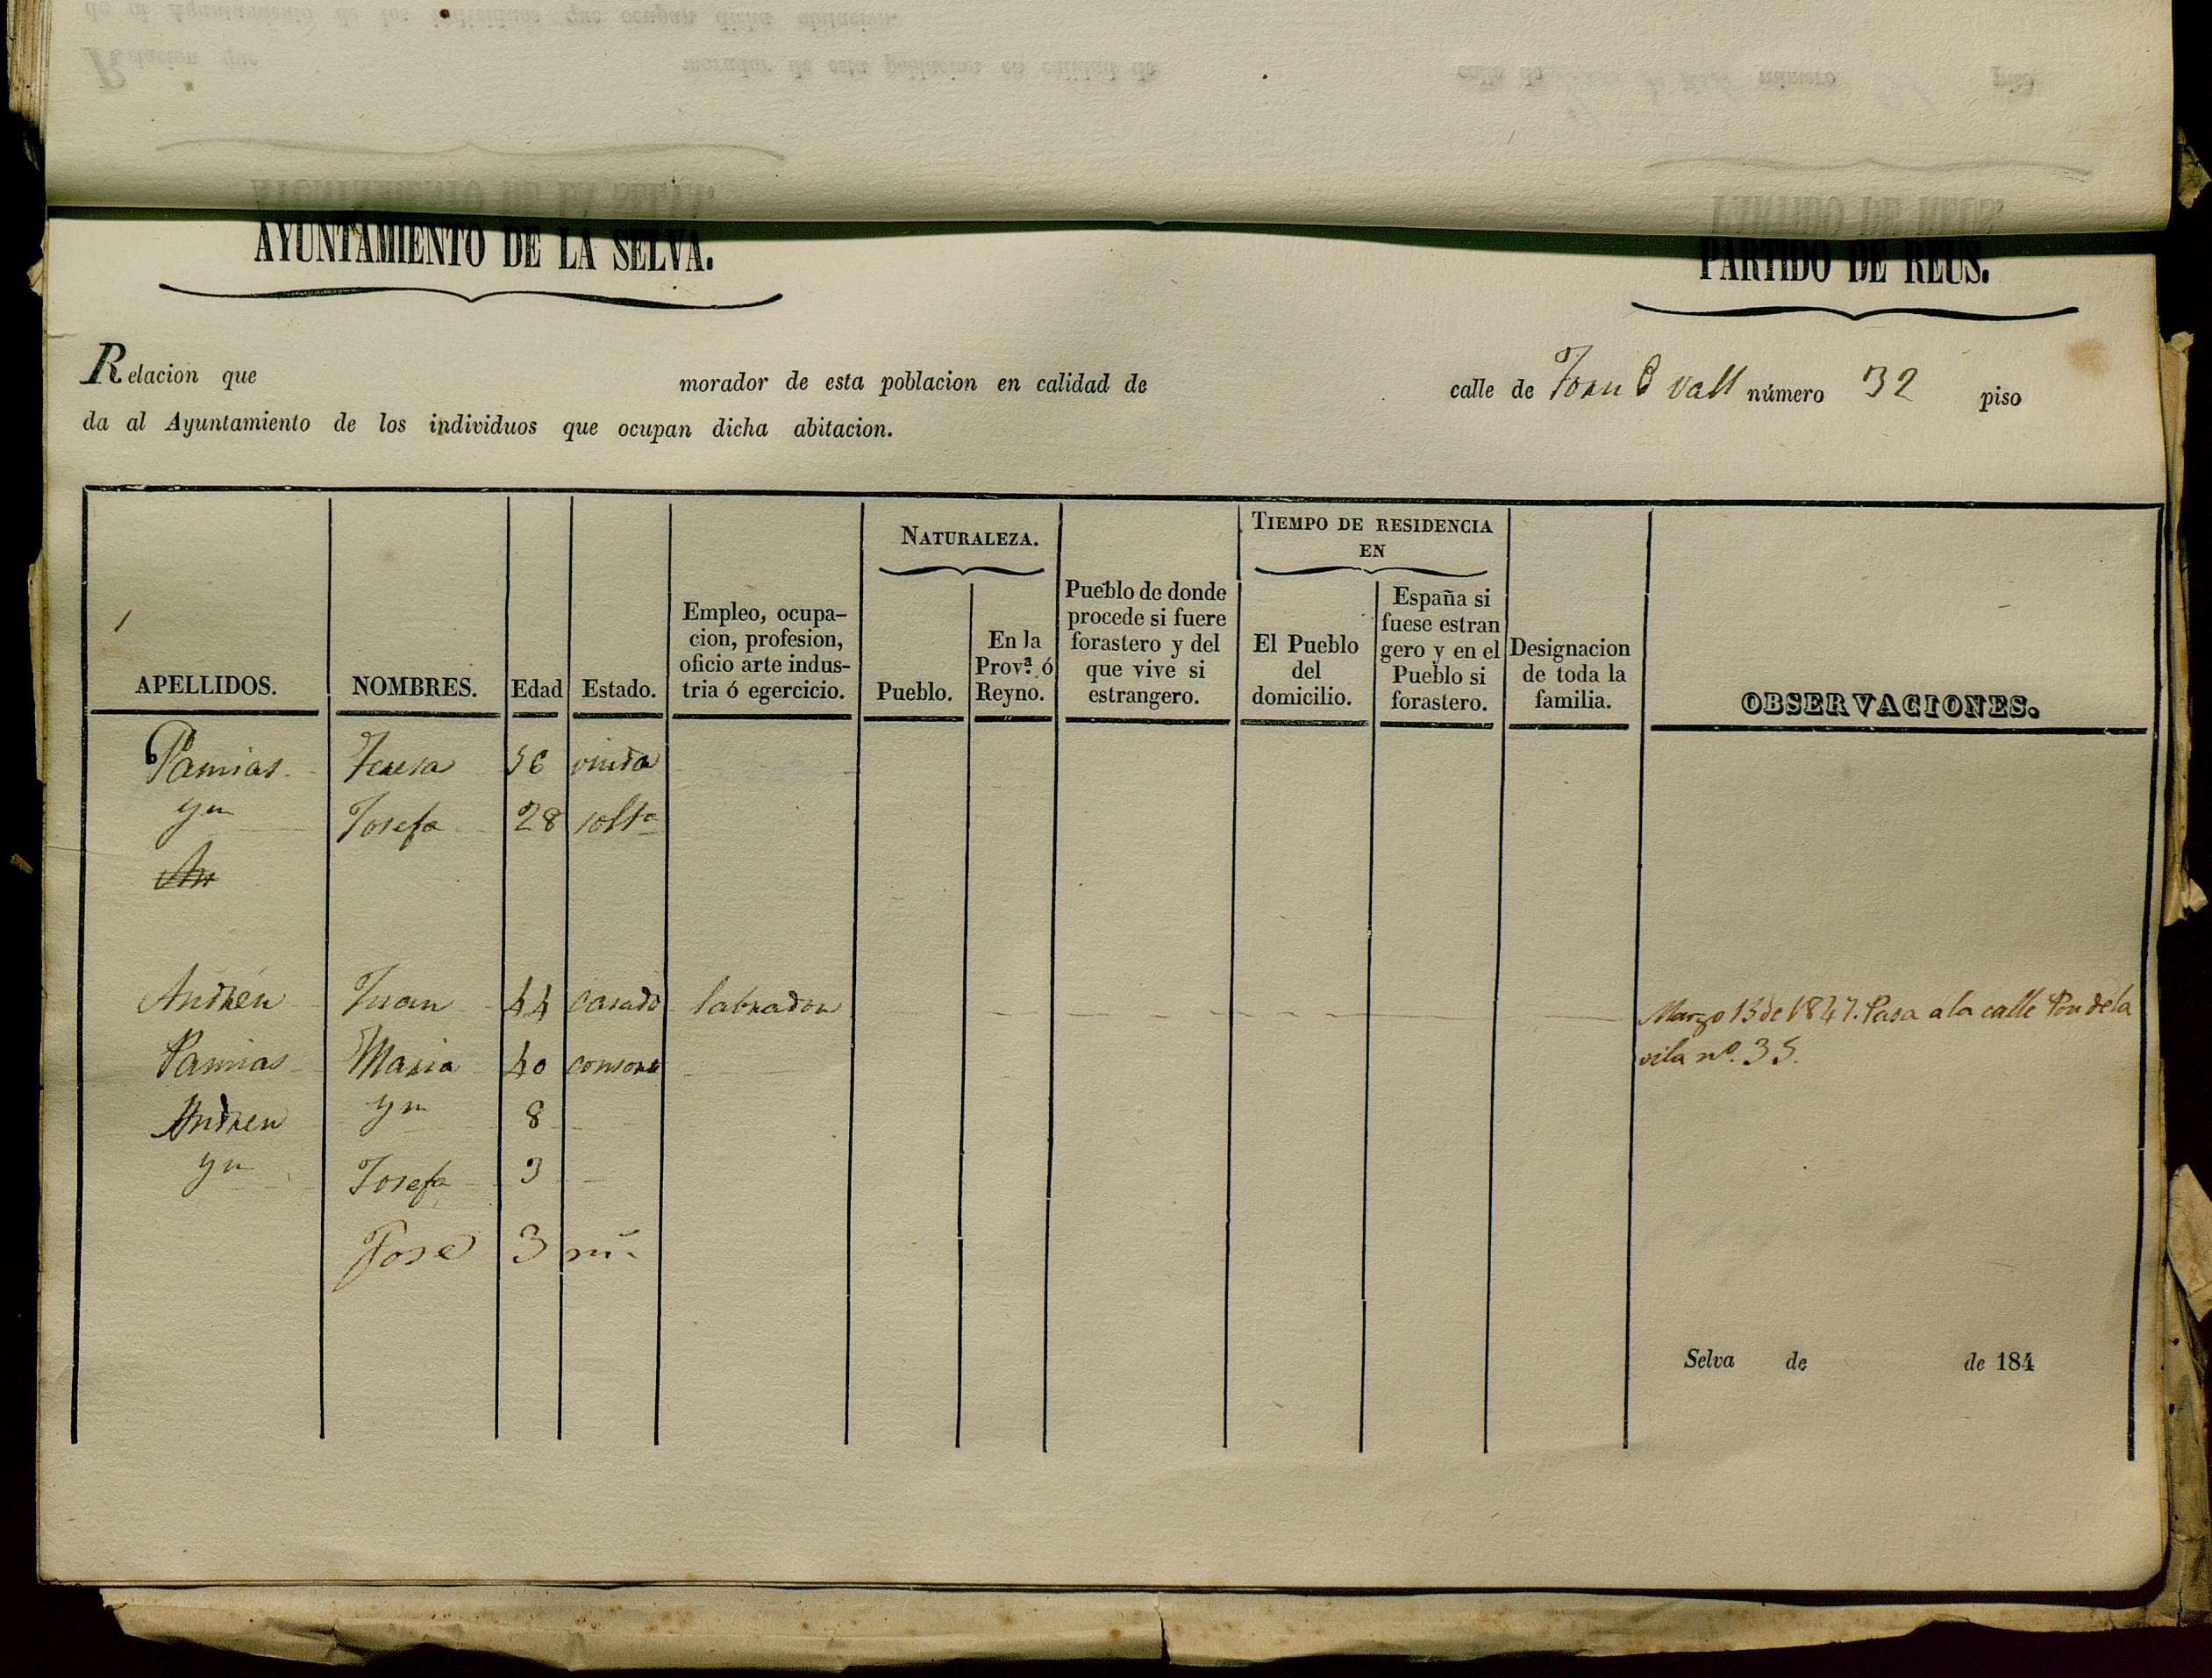 AYUNTAMIENTO DE LA SELVA.
PARTIDO DE REUS.
Relacion que morador de esta poblacion en calidad de calle de Forn d vall número 32 piso
da al Ayuntamiento de los individuos que ocupan dicha abitacion.
APELLIDOS.
NOMBRES.
Edad
Estado.
Empleo, ocupa-
cion, profesion,
oficio arte indus-
tria ó egercicio.
NATURALEZA.
Pueblo.
En la
Prov.ª ó
Reyno.
Pueblo de donde
procede si fuere
forastero y del
que vive si
estrangero.
TIEMPO DE RESIDENCIA
EN
El Pueblo
del
domicilio.
España si
fuese estran
gero y en el
Pueblo si
forastero.
Designacion
de toda la
familia.
OBSERVACIONES.
Pamias Teresa 56 viuda
yn Josefa 28 solta
An
Andreu Juan 44 casado labrador Marzo 13 de 1847. Pasa a la calle Pou de la
vila nº. 35.
Pamias Maria 40 consorte
Andreu yn 8
yn Josefa 3
José 3 m
Selva de de 184